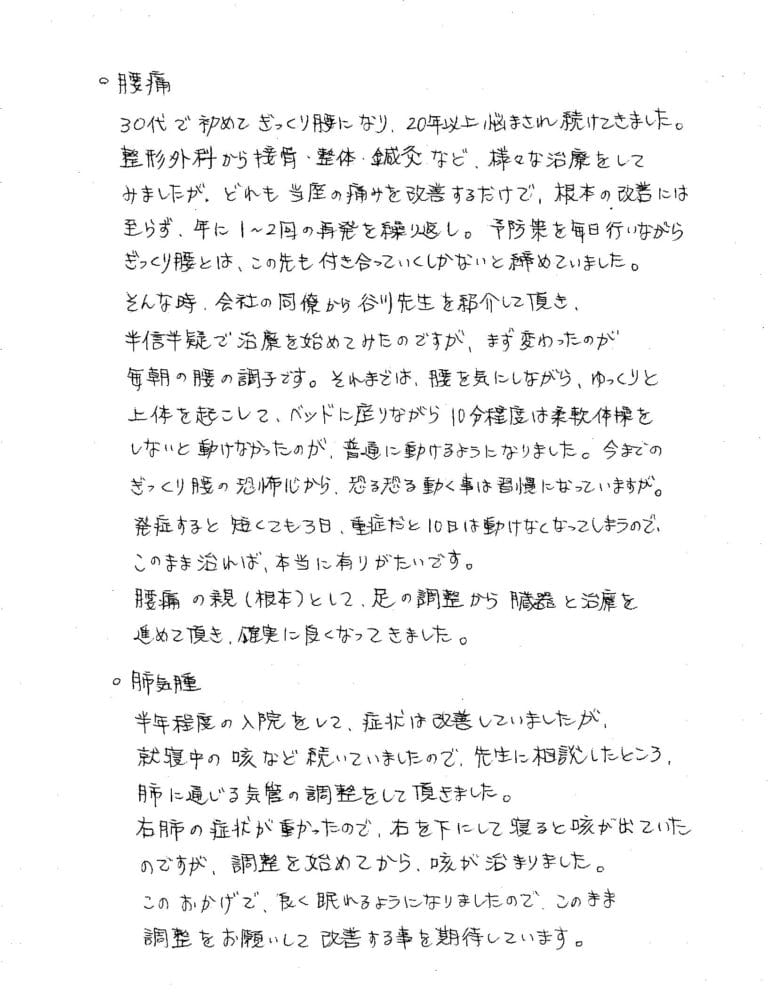 ○ 腰痛
30代で初めてぎっくり腰になり、20年以上悩まされ続けてきました。
整形外科から接骨・整体・鍼灸など、様々な治療をして
みましたが、どれも当座の痛みを改善するだけで、根本の改善には
至らず、年に1～2回の再発を繰り返し。予防策を毎日行いながら
ぎっくり腰とは、この先も付き合っていくしかないと締めていました。
そんな時、会社の同僚から谷川先生を紹介して頂き、
半信半疑で治療を始めてみたのですが、まず変わったのが
毎朝の腰の調子です。それまでは、腰を気にしながら、ゆっくりと
上体を起こして、ベッドに座りながら10分程度は柔軟体操を
しないと動けなかったのが、普通に動けるようになりました。今までの
ぎっくり腰の恐怖心から、恐る恐る動く事は習慣になっていますが。
発症すると短くても3日、重症だと10日は動けなくなってしまうので、
このまま治れば、本当に有りがたいです。
腰痛の親(根本)として、足の調整から臓器と治療を
進めて頂き、確実に良くなってきました。
○ 肺気腫
半年程度の入院をして、症状は改善していましたが、
就寝中の咳など続いていましたので、先生に相談したところ、
肺に通じる気管の調整をして頂きました。
右肺の症状が重かったので、右を下にして寝ると咳が出ていた
のですが、調整を始めてから、咳が治まりました。
このおかげで、良く眠れるようになりましたので、このまま
調整をお願いして改善する事を期待しています。